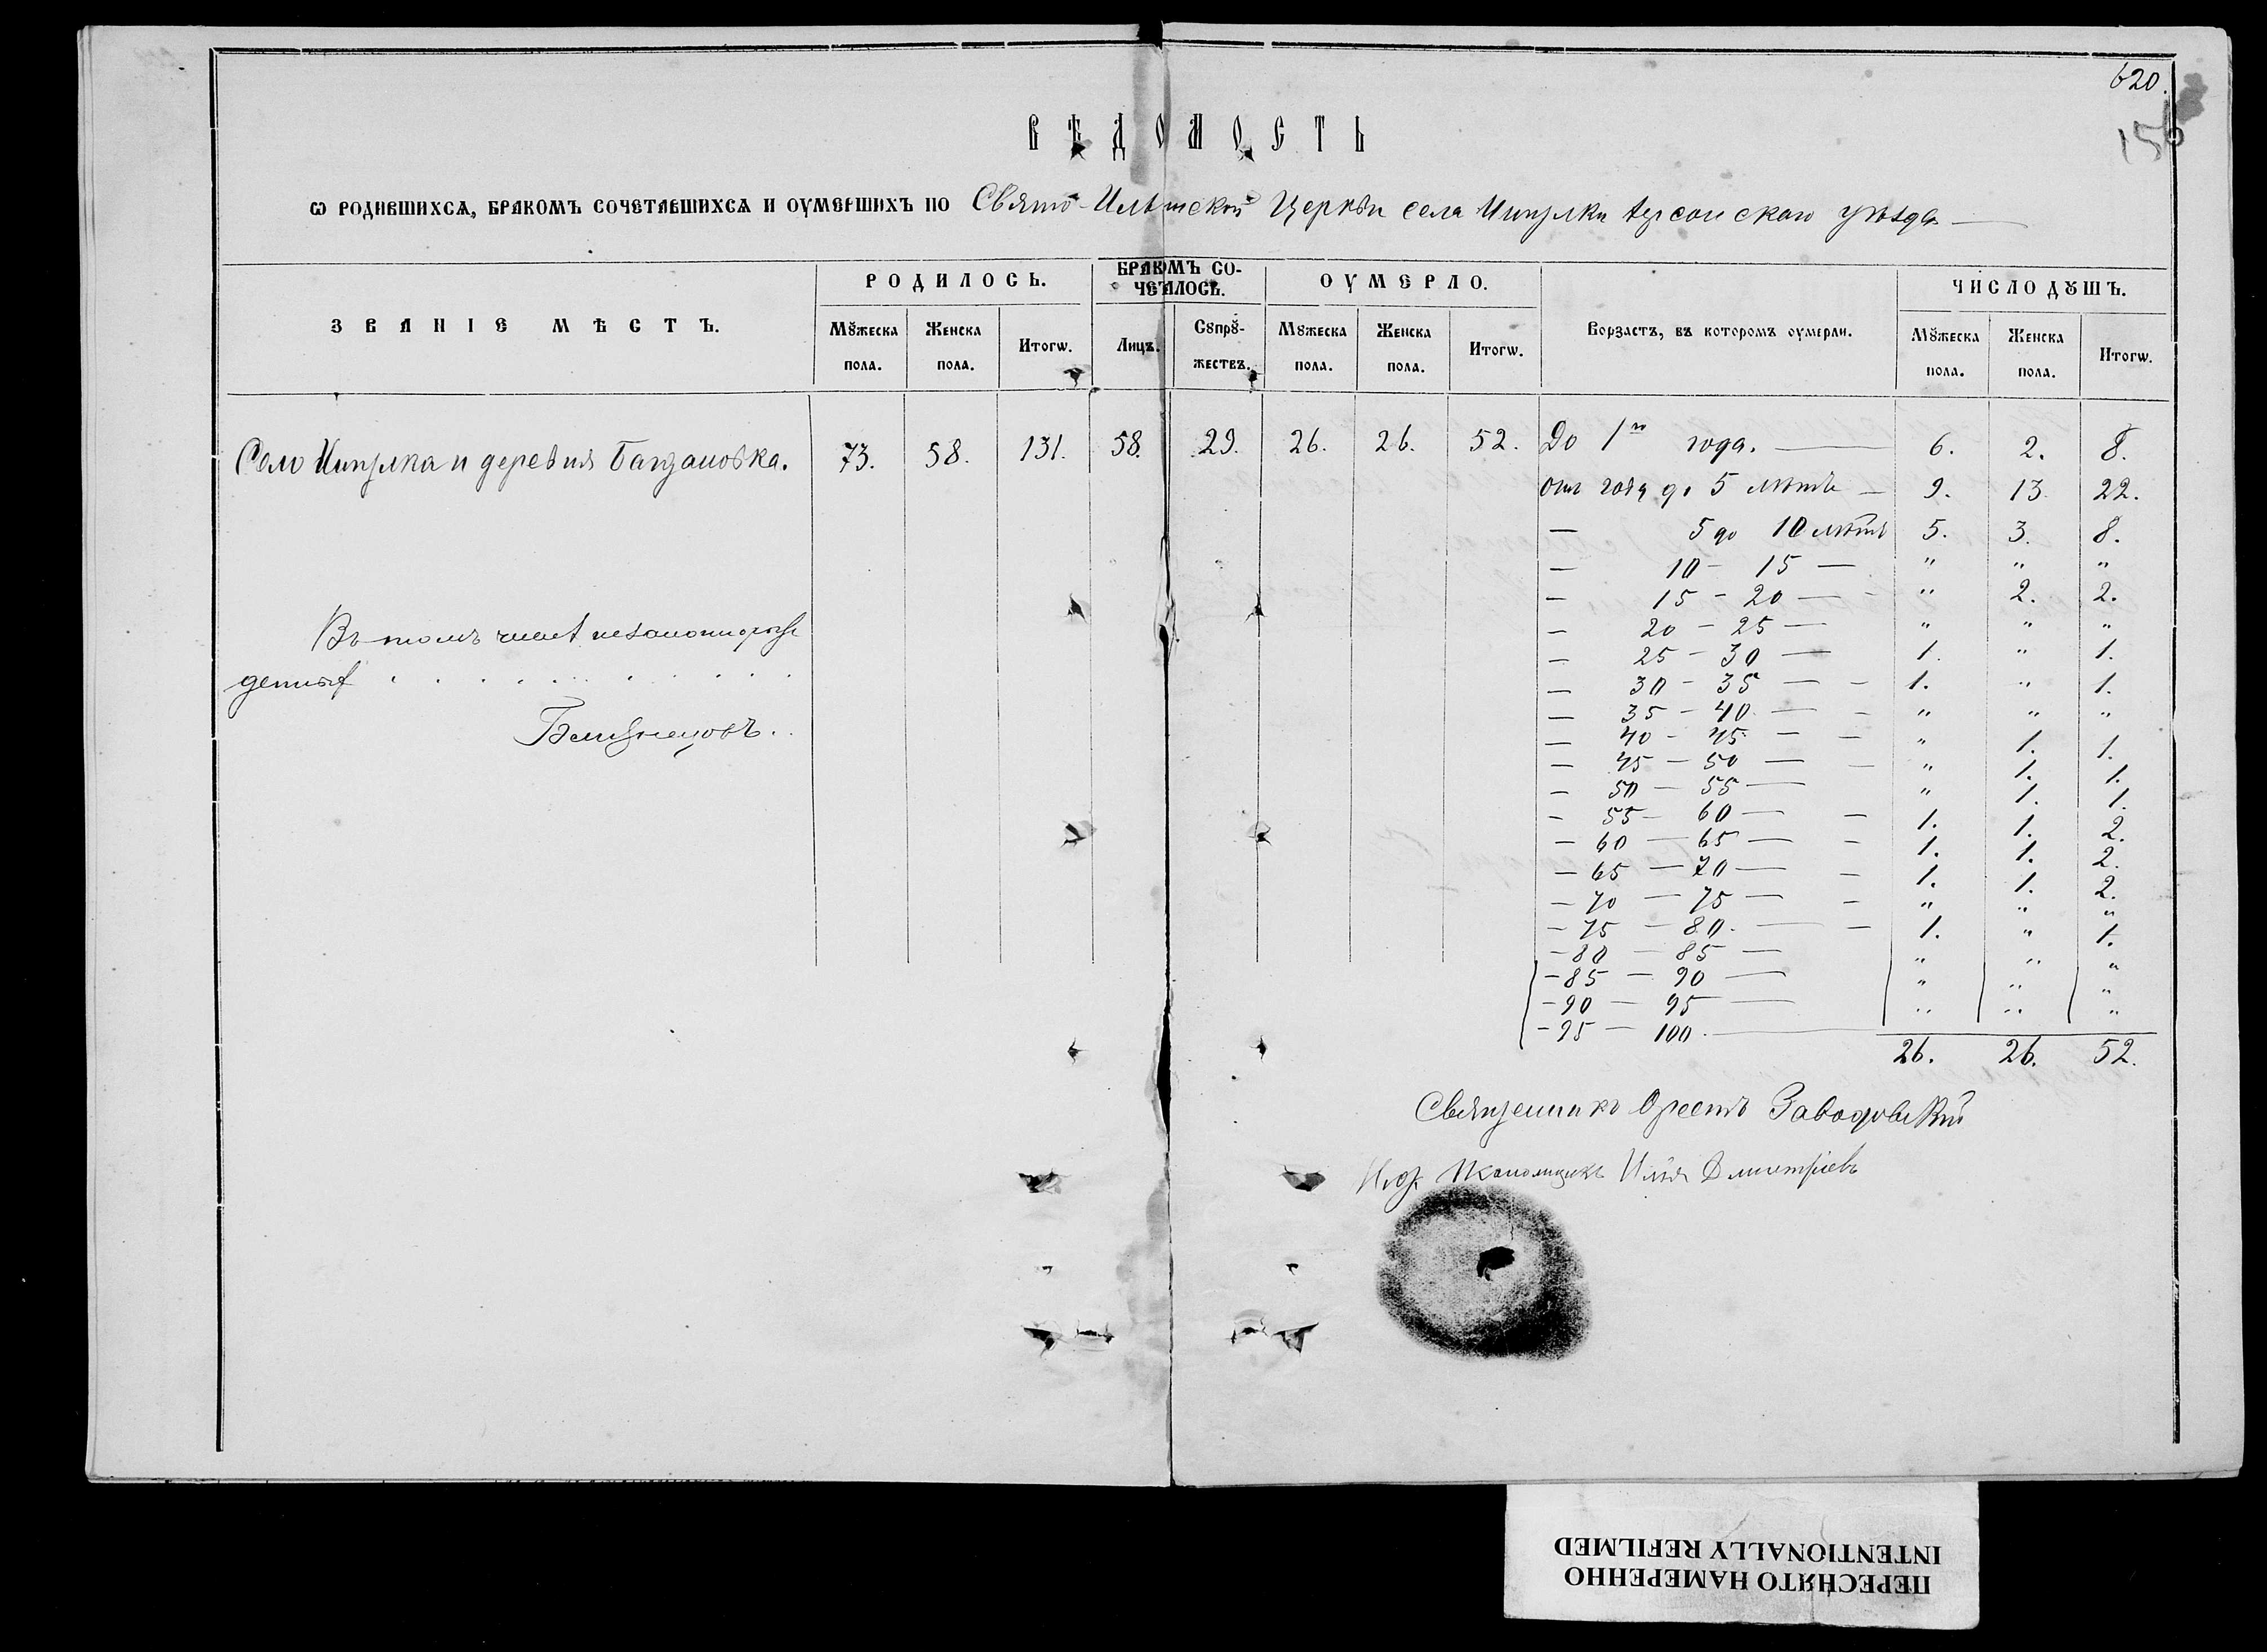 620.
156
ВѢДОМОСТЬ
Ѡ РОДИВШИХСѦ, БРАКОМЪ СОЧЕТАВШИХСѦ И ОУМЕРШИХЪ ПО Свято-Ильинской Церкви села Шипулки Херсонскаго уѣзда
ЗВАНІЕ МѢСТЪ. РОДИЛОСЬ. БРАКОМЪ СО-ЧЕТАЛОСЬ. ОУМЕРЛО. Ворзастъ, въ которомъ оумерли. ЧИСЛО ДꙊШЪ.
Мꙋжеска пола. Женска пола. Итогѡ. Лицъ. Сꙋпрꙋ-жествъ. Мꙋжеска пола. Женска пола. Итогѡ. Мꙋжеска пола. Женска пола. Итогѡ.
Село и деревня Богдановка. 73. 58. 131. 58. 29. 26. 26. 52. До 1го года. — 6. 2. 8.
отъ года до 5 лѣтъ — 9. 13. 22.
— 5 до 10 лѣтъ 5. 3. 8.
— 10 – 15 — " " "
— 15 – 20 — " 2. 2.
— 20 – 25 — " " "
— 25 – 30 — 1. " 1.
— 30 – 35 — 1. " 1.
— 35 – 40 — " " "
— 40 – 45 — " 1. 1.
— 45 – 50 — " 1. 1.
— 50 – 55 — " 1. 1.
— 55 – 60 — 1. 1. 2.
— 60 – 65 — 1. 1. 2.
— 65 – 70 — 1. 1. 2.
— 70 – 75 — " " "
— 75 – 80 — 1. " 1.
— 80 – 85 — " " "
— 85 – 90 — " " "
— 90 – 95 — " " "
— 95 – 100 —
26. 26. 52.
Въ томъ числѣ незаконнорож
денныхъ . . . . . . . . . .
Близнецовъ . .
Священникъ Орестъ Заводовскій
И. д. Псаломщикъ Илія Дмитріевъ
ПЕРЕСНЯТО НАМЕРЕННО
INTENTIONALLY REFILMED